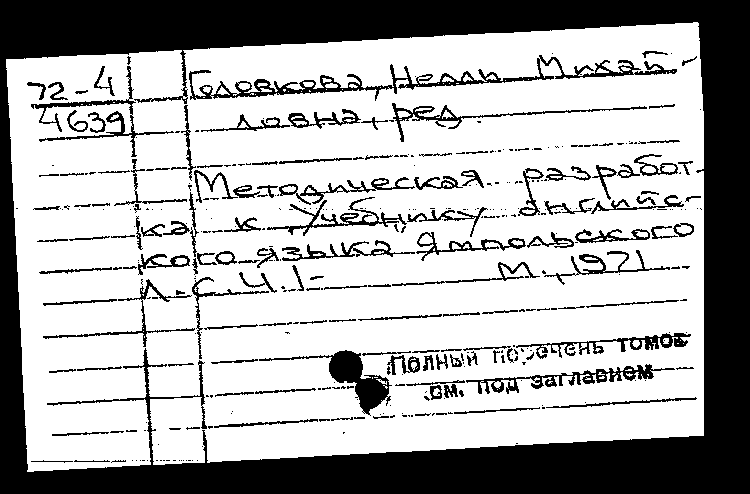 72-4
4639
Головкова, Нелли Михай-
ловна, ред.
Методическая разработ-
ка к „Учебнику английс-
кого языка Ямпольского
Л.С.Ч.1-        М., 1971
Полный перечень томов
см. под заглавием